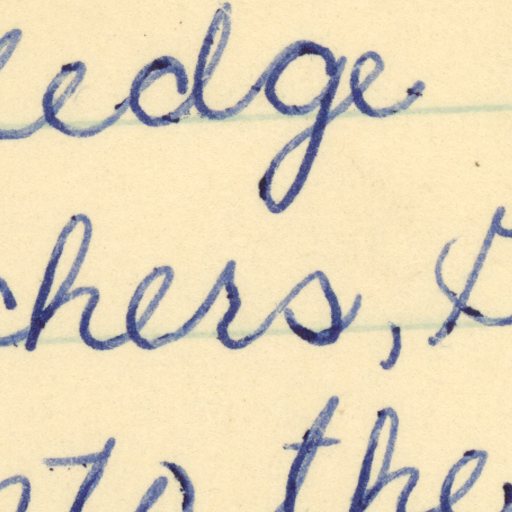 ledge
chers,
to the